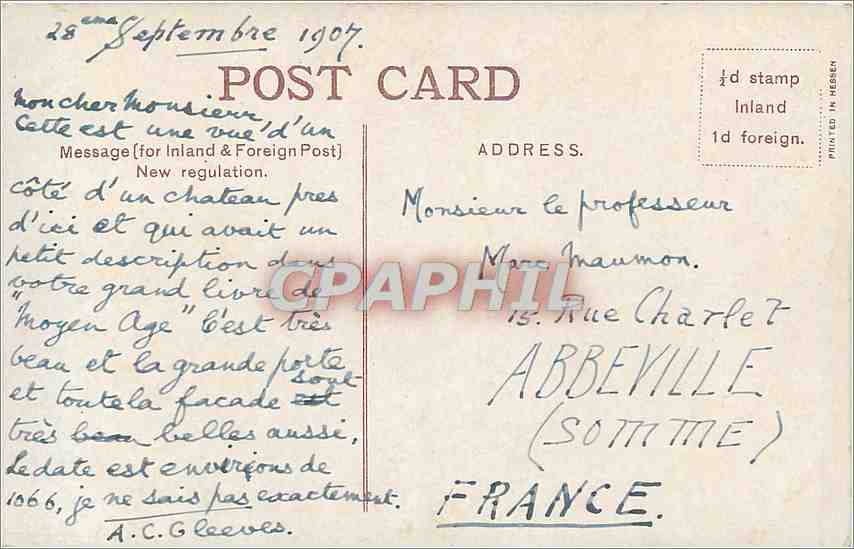 28ème Septembre 1907.
POST CARD
½d stamp
Inland
1d foreign.
PRINTED IN HESSEN
Mon cher Monsieur,
Cette est une vue d'un
Message (for Inland & Foreign Post)
New regulation.
côté d'un chateau pres
d'ici et qui avait un
petit description dans
votre grand livre de
"Moyen Age" C'est très
beau et la grande porte
sont
et toute la facade est
très beau belles aussi,
Le date est envirions de
1066, je ne sais pas exactement.
A.C. Gleeves.
ADDRESS.
Monsieur le professeur
Marc Maumon.
15. Rue Charlet
ABBEVILLE
(SOMME)
FRANCE.
CPAPHIL